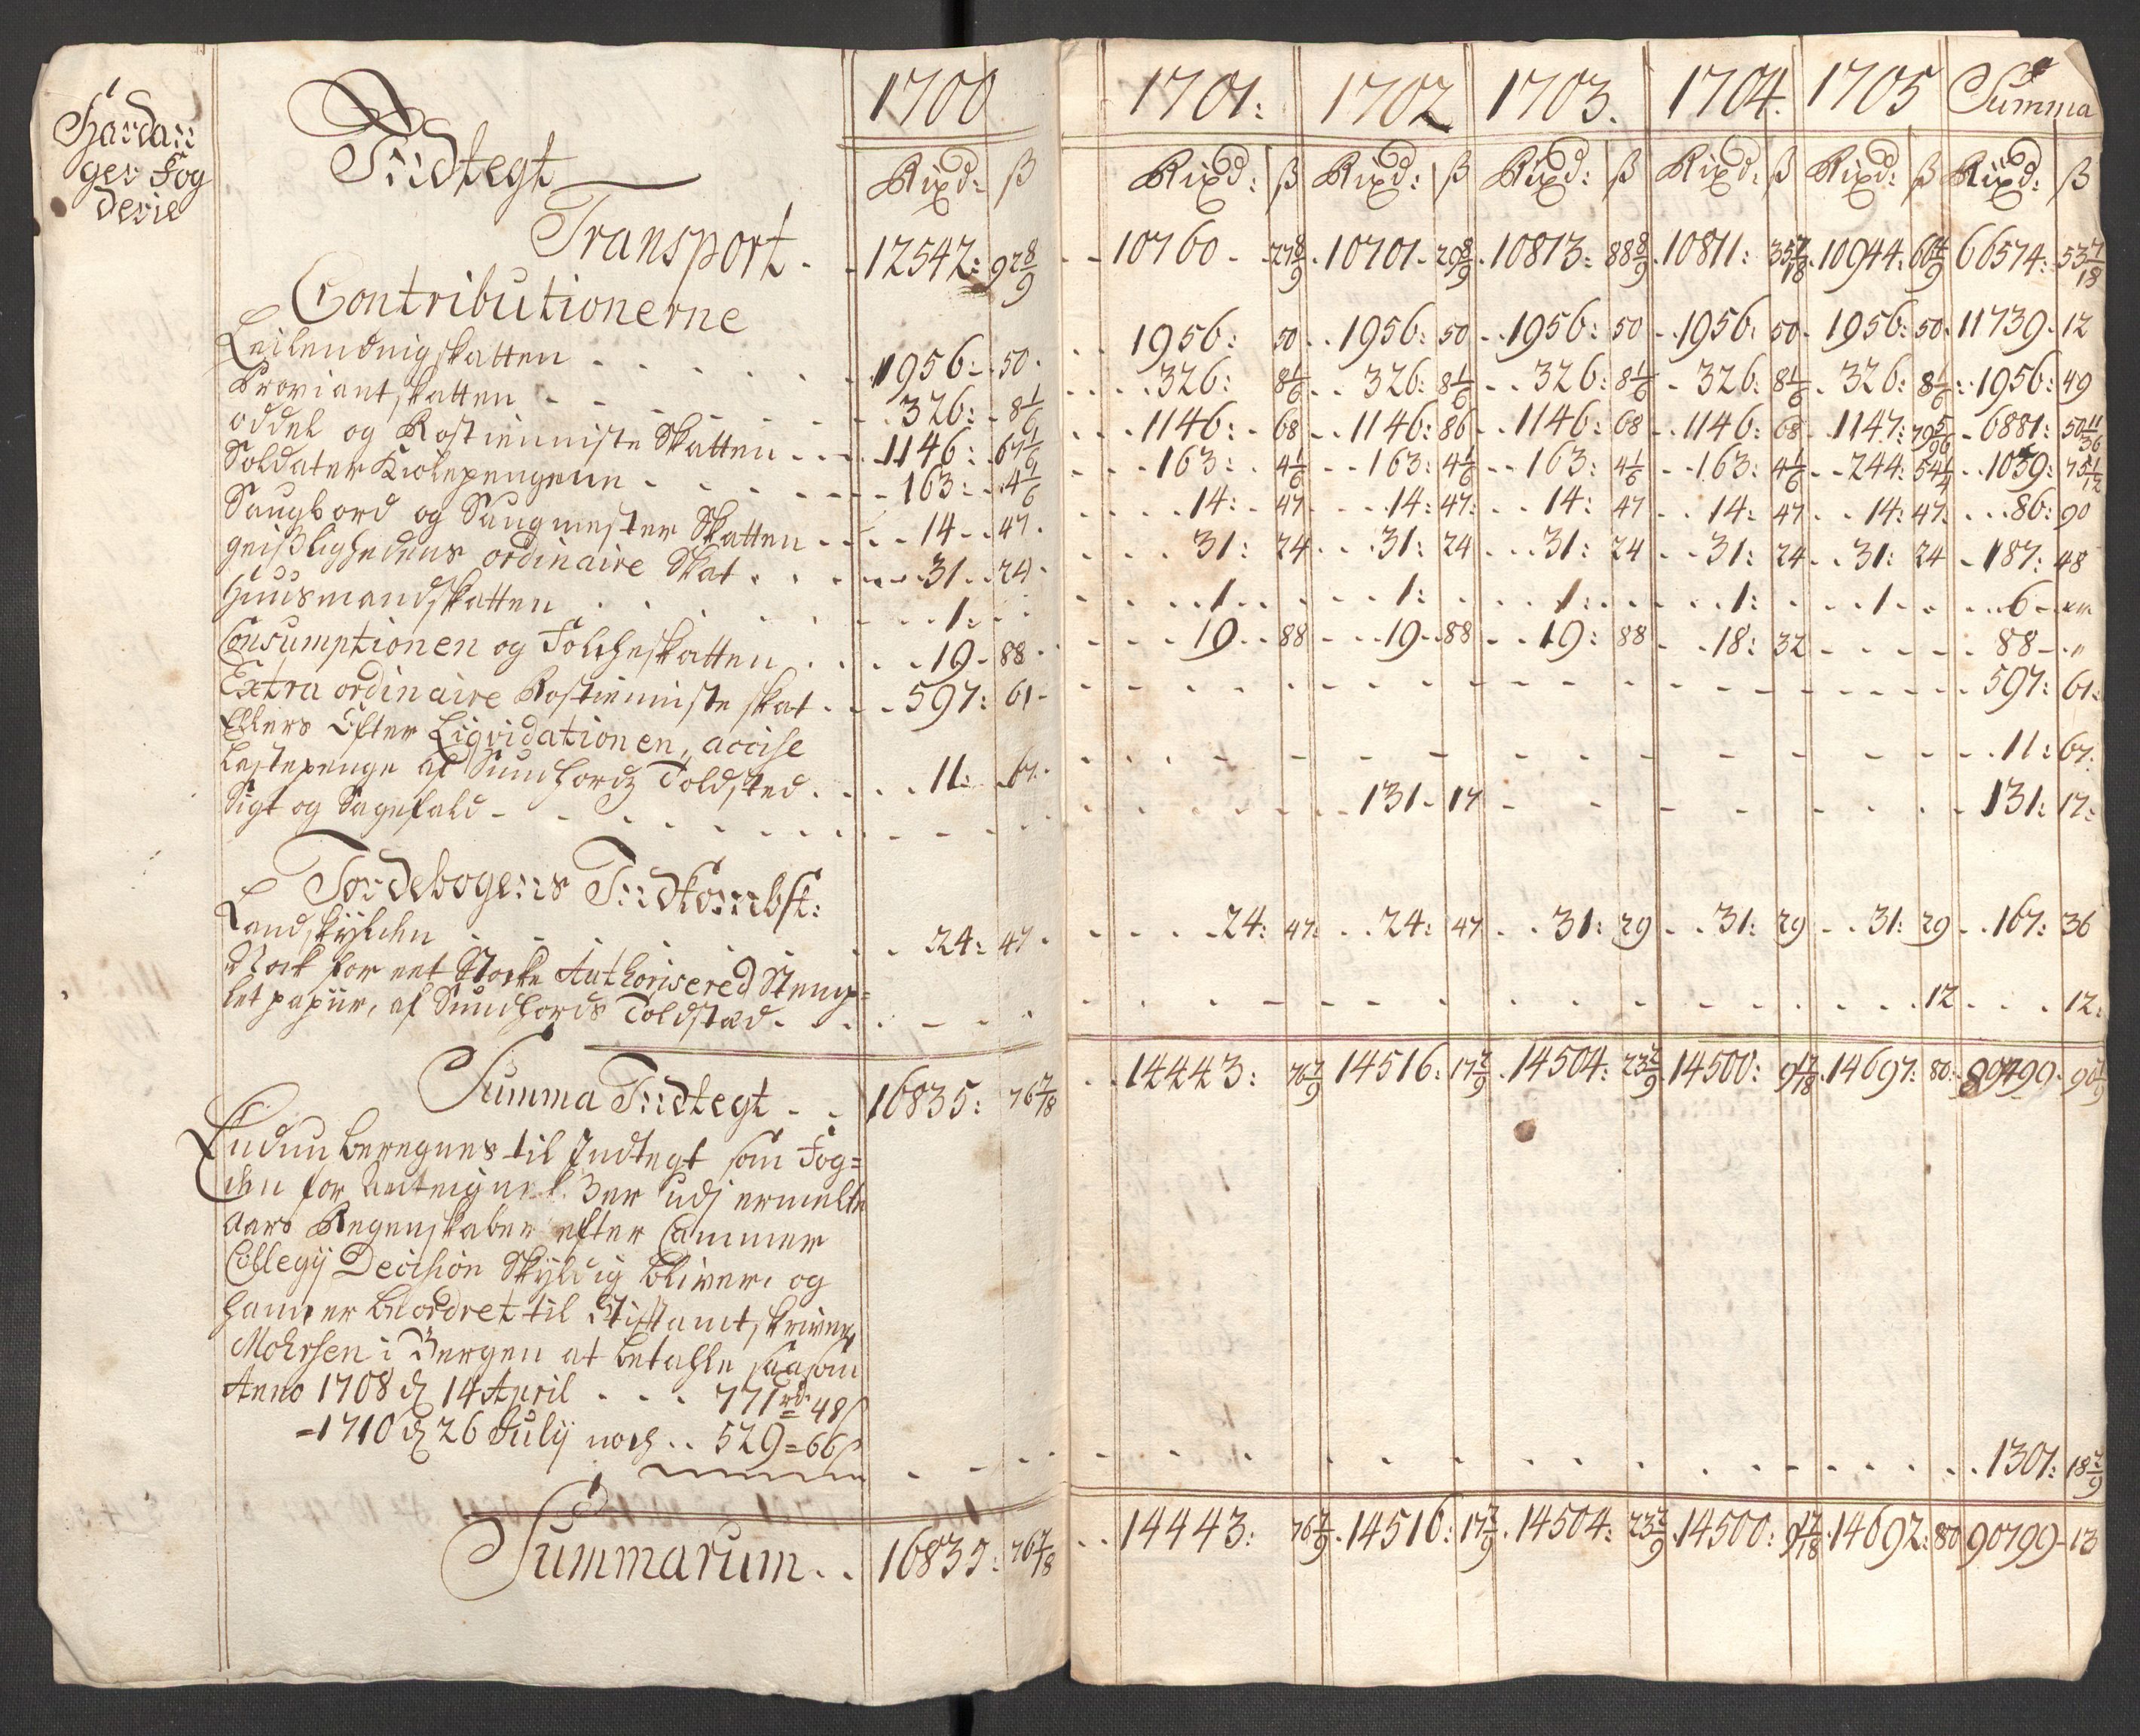 Hardan=
ger Fog
derie
Indtegt 1700 1701: 1702 1703. 1704. 1705 Summa
Rixd: ß Rixd: ß Rixd: ß Rixd: ß Rixd: ß Rixd: ß Rixd: ß
Transport . . 12542: 92 8/9 10760 27 8/9 10701 29 8/9 10813: 88 8/9 10811: 35 7/18 10944: 60 4/9 66574: 53 7/18
Contributionerne
Leilendingskatten 1956 50 1956: 50 1956: 50 1956: 50 1956: 50 1956: 50 11739 12
Proviantskatten 326: 8 1/6 326: 8 1/6 326: 8 1/6 326: 8 1/6 326: 8 1/6 326: 8 1/6 1956: 49
oddel og Rostienniste Skatten 1146: 67 1/9 1146: 68 1146: 86 1146: 68 1146: 68 1147: 79 5/96 6881: 50 11/36
Soldater Kiolepengene 163: 4 1/6 163: 4 1/6 163: 4 1/6 163: 4 1/6 163: 4 1/6 244: 54 1/4 1059: 75 1/12
Saugbord og Saugmester Skatten 14 47 14: 47 14: 47: 14: 47 14: 47 14: 47: 86: 90
geistlighedens ordinaire Skat 31 24 31: 24 31: 24 31: 24 31: 24 31: 24 187: 48
Huusmandskatten 1: 1 1: 1: 1: 1 6
Consumptionen og Folcheskatten 19 88 19 88 19 88 19: 88 18: 32 88
Extra ordinaire Rostienniste skat 597: 61 597: 61:
Ellers Efter Liqvidationen, accise
Lastepenge af Sundhordz Toldsted 11: 67 11: 67:
Sigt og Sagefald 131 17 131: 17:
Jordebogens Indkombst:
Landskylden 24: 47 24: 47: 24: 47 31: 29 31: 29 31: 29 167: 36
Nock for eet Støcke Authorisered Stemp=
let papiir, af Sundhords Toldstæd 12 12:
Summa Indtegt 16835: 76 7/18 14443: 76 7/9 14516: 17 2/9 14504: 23 2/9 14500: 9 17/18 14697: 80: 89499 90 1/9
Endnu beregnes til Indtegt som Fog=
den for udj ermelte
aars Regenskaber efter Cammer
Collegij Decision Skyldig bliver, og
hand er beordret til Stiftamtskriver
Mohrsen i Bergen at betahle saasom
Anno 1708 d 14 April 771 rd 48 ß
=1710 d 26 July noch .. 529 = 66 ß 1301: 18 2/9
Summarum . . 16835: 76 7/18 14443: 76 7/9 14516: 17 2/9 14504: 23 2/9 14500: 9 17/18 14692: 80 90799 13